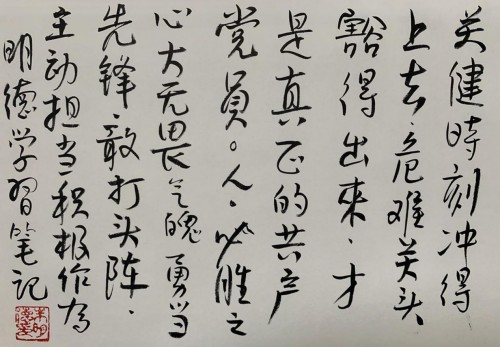 关健時刻冲得
上去危难关头
豁得出來、才
是真正的共产
党員。以必胜之
心大无畏气魄勇当
先鋒、敢打头阵、
主动担当积极作為
明德学習笔記